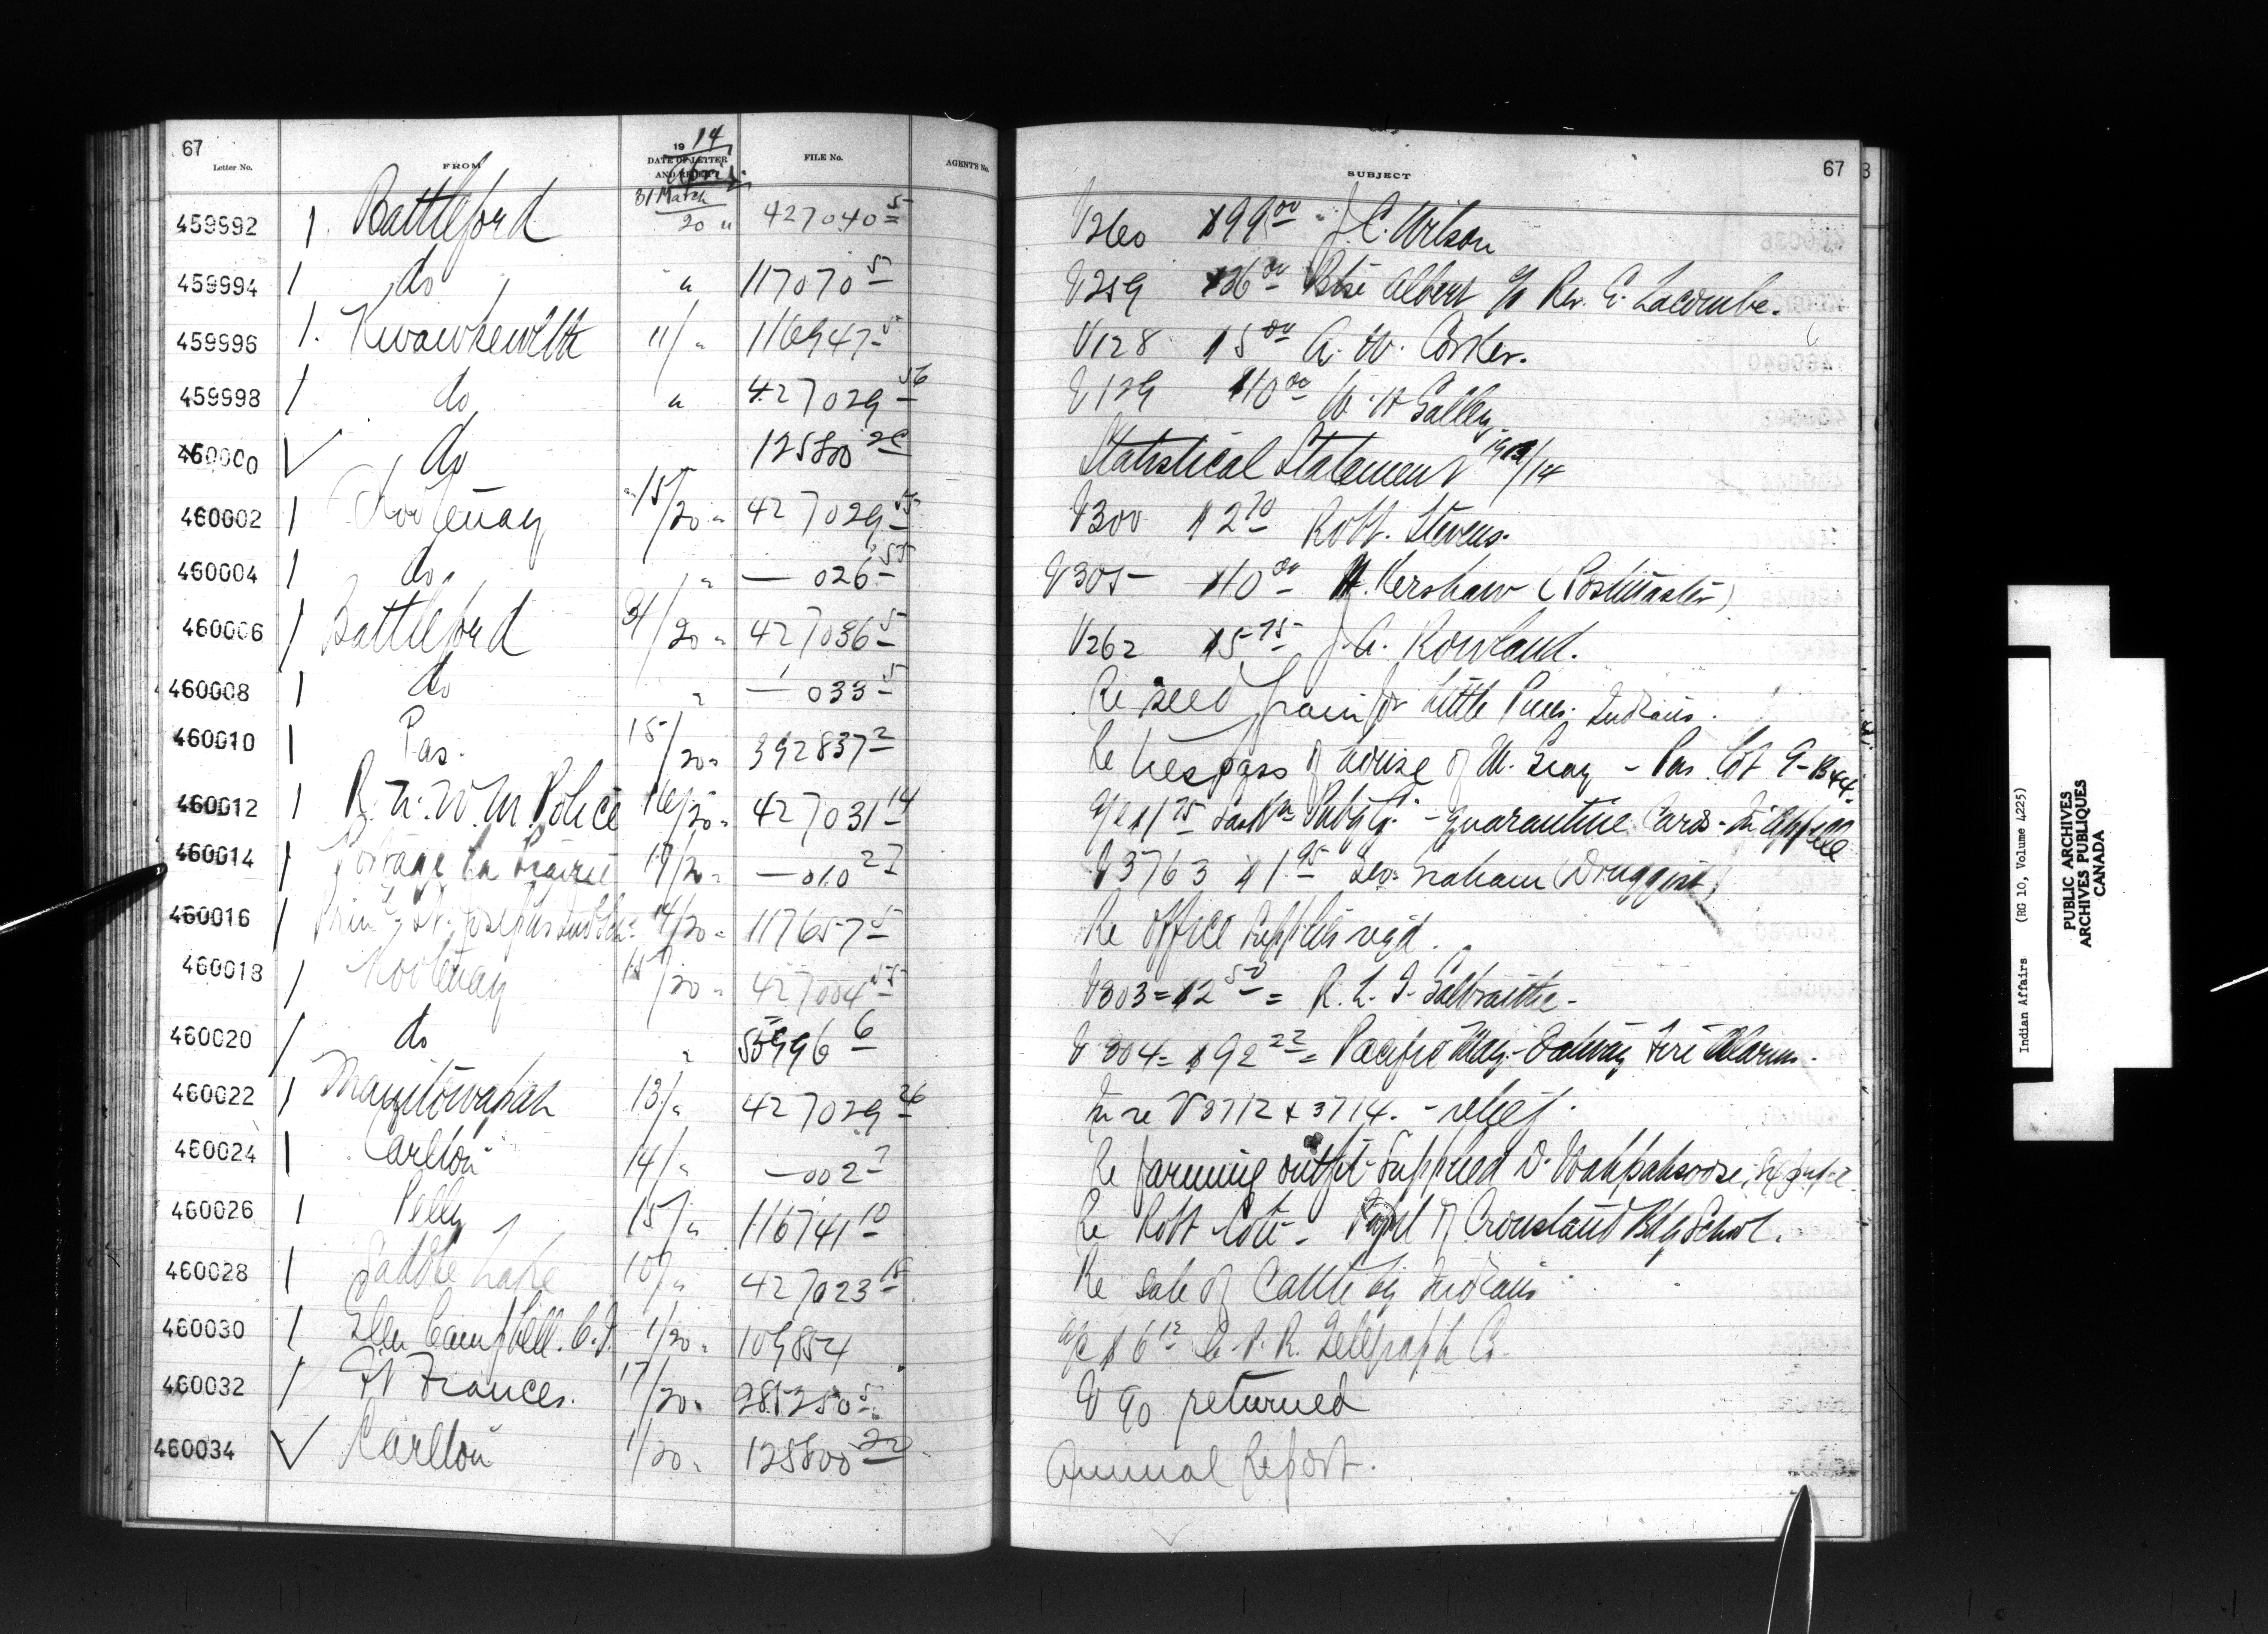 67
Letter No. FROM 19 14 DATE OF LETTER AND RECEIPT April FILE No. AGENT'S No. SUBJECT 67
459992 1 Battleford 31 March / 20 " 427040 5 V260 $99 00 J. C. Wilson
459994 1 do " 117070 5 V259 $36 00 Albert Rev. E. Lacombe.
459996 1. Kwawkewlth 11/ " 116947 5 V128 $5 00 A. W. Corker.
459998 1 do " 427029 56 V129 $10 00 W. H Galley
460000 ✓ do 125800 20 Statistical Statement 1913/14
460002 1 Kootenay 15/20 " 427029 55 V300 $2 70 Robt. Stevens.
460004 1 do " — 026 55 V305 $10 00 H. Kershaw (Postmaster)
460006 1 Battleford 31/20 " 427036 5 V262 $5 75 J. A. Rowland.
460008 1 do " — 033 5 Re seed grain for Little Pines Indians.
460010 1 Pas. 15/20 " 392837 2 Re trespass of house of M. Gray - Pas Lot 9-
460012 1 R. N. W. M. Police 16/20 " 427031 14 a/c $1 75 - quarantine Cards -
460014 1 Portage la Prairie 17/20 " — 010 27 V3763 $1 95 Geo. Graham (Druggist)
460016 1 Prin. St. Josephs Ind Sch. 14/20 " 117657 5 Re office supplies reqd.
460018 1 Kootenay 15/20 " 427004 55 V303 = $12 50 = R. L. T. Galbraith -
460020 1 do " 6 V304 = $92 22 = Pacific Fire Alarm.
460022 1 Manitowapah 13/ " 427029 26 In re V3712 & 3714. - relief.
460024 1 Carlton 14/ " — 002 7 Re farming outfit supplied D.
460026 1 Pelly 15/ " 116741 10 Re Robt Cote - Pupil of Crowstand Bdg School.
460028 1 Saddle Lake 10/ " 427023 18 Re sale of Cattle by Indians
460030 1 Glen Campbell. C.I. 1/20 " 109854 a/c $6 12 C. P. R. Telegraph Co.
460032 1 Ft Frances. 17/20 " 285250 5 V 90 returned
460034 ✓ Carlton 1/20 " 125800 20 Annual Report.
Indian Affairs (RG 10, Volume 4225)
PUBLIC ARCHIVES
ARCHIVES PUBLIQUES
CANADA